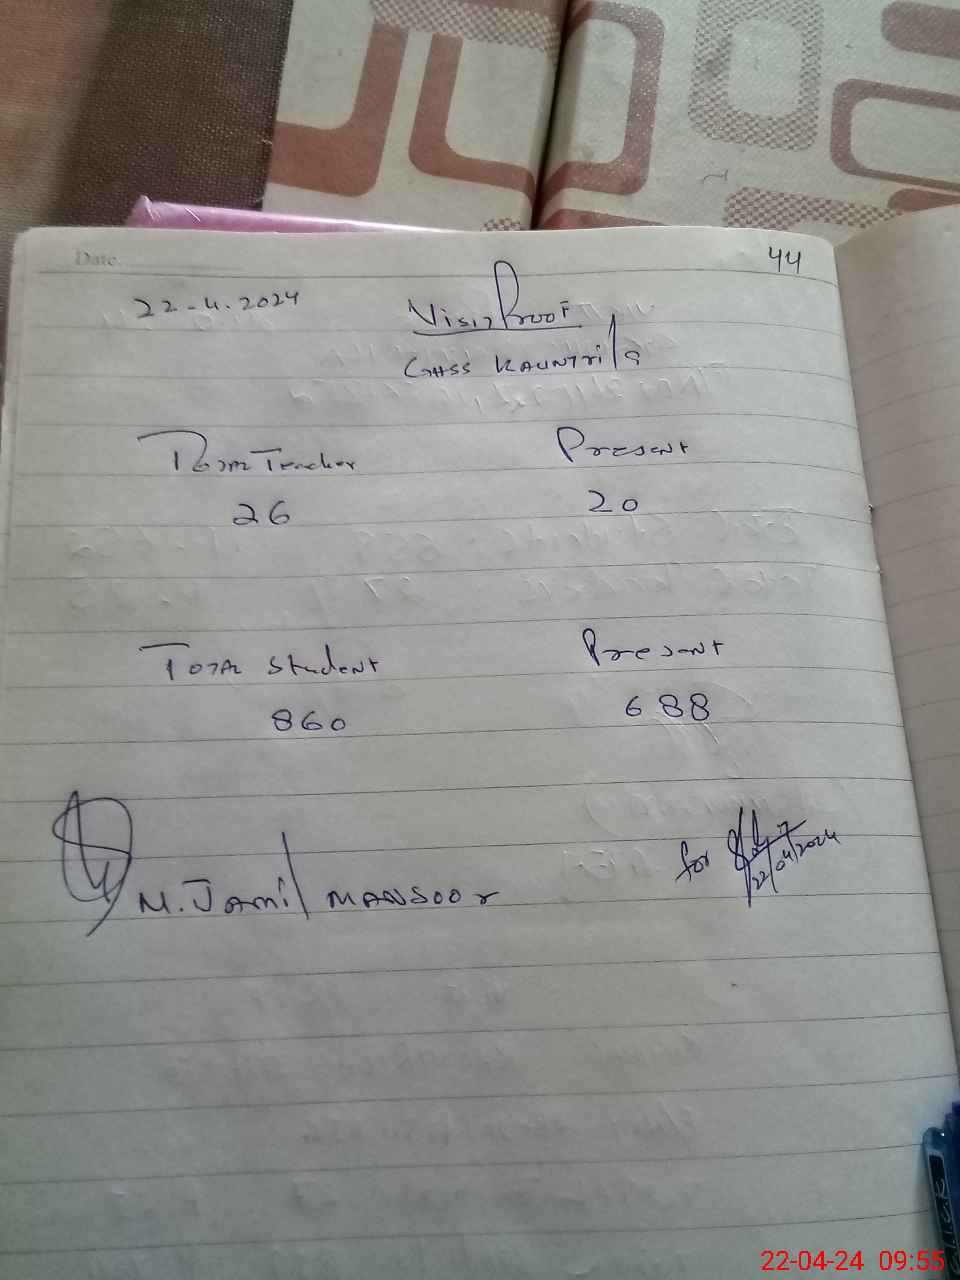 Date.
44
22-4.2024
Visit Proof
GHSS KAUNTrila
Total Teacher Present
26 20
Total Student Present
860 688
M. Jamil MANSOOr
for
22/04/2024
click
22-04-24 09:55